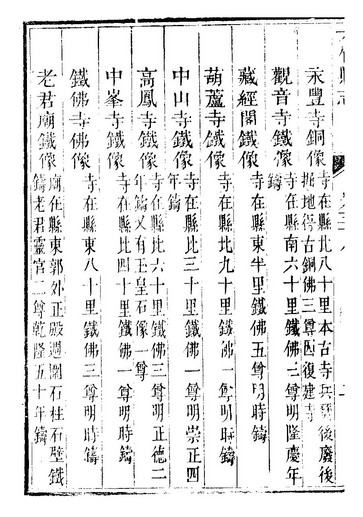 永豐寺銅像
寺在縣北八十里本古寺兵燹後廢後
掘地得古銅佛三尊因復建寺
觀音寺鐵像
寺在縣南六十里鐵佛三尊明隆慶年
鑄
藏經閣鐵像
寺在縣東半里鐵佛五尊明時鑄
葫蘆寺鐵像
寺在縣北九十里鐵佛一尊明時鑄
中山寺鐵像
寺在縣北三十里鐵佛一尊明崇正四
年鑄
高鳳寺鐵像
寺在縣北六十里鐵佛三尊明正德二
年鑄又有玉皇石像一尊
中峯寺鐵像
寺在縣北四十里鐵佛一尊明時鑄
鐵佛寺佛像
寺在縣東八十里鐵佛三尊明時鑄
老君廟鐵像
廟在縣東郭外正殿週圍石柱石壁鐵
鑄老君靈官二尊乾隆五十年鑄